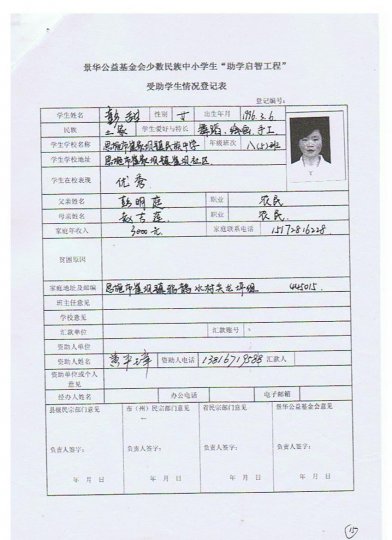 景华公益基金会少数民族中小学生“助学启智工程”
受助学生情况登记表
登记编号：
学生姓名 彭 性别 女 出生年月 1996.3.6
民族 土家 学生爱好与特长 舞蹈、绘画、手工
学生学校名称 恩施市崔家坝镇民族中学 年级班次 八(5)班
学生学校地址 恩施市崔家坝镇崔坝社区
学生在校表现 优秀
父亲姓名 彭明庭 职业 农民
母亲姓名 赵吉莲 职业 农民
家庭年收入 3000元 家庭联系电话 15172816228
贫困原因
家庭地址及邮编 恩施市崔坝镇 水村 445015
班主任意见
学校意见
汇款单位 汇款账号
资助人单位
资助人姓名 资助人电话 13816719588 汇款人
资助单位或个人
意见
经办人姓名 办公电话 电子邮箱
县级民宗部门意见 市（州）民宗部门意见 省民宗部门意见 景华公益基金会意见
负责人签字： 负责人签字： 负责人签字： 负责人签字：
年 月 日 年 月 日 年 月 日 年 月 日